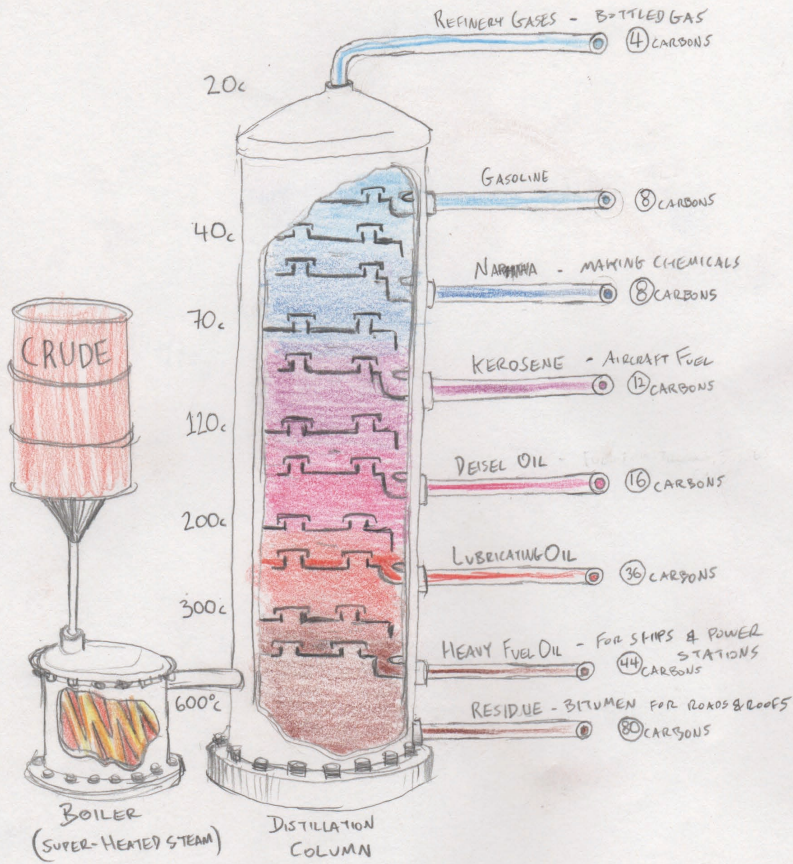 REFINERY GASES - BOTTLED GAS
4 CARBONS
20c
GASOLINE
8 CARBONS
40c
- MAKING CHEMICALS
8 CARBONS
70c
CRUDE
KEROSENE - AIRCRAFT FUEL
12 CARBONS
120c
DEISEL OIL
16 CARBONS
200c
LUBRICATING OIL
36 CARBONS
300c
HEAVY FUEL OIL - FOR SHIPS & POWER
STATIONS
44 CARBONS
600°c
RESIDUE - BITUMEN FOR ROADS & ROOFS
80 CARBONS
BOILER
(SUPER-HEATED STEAM)
DISTILLATION
COLUMN